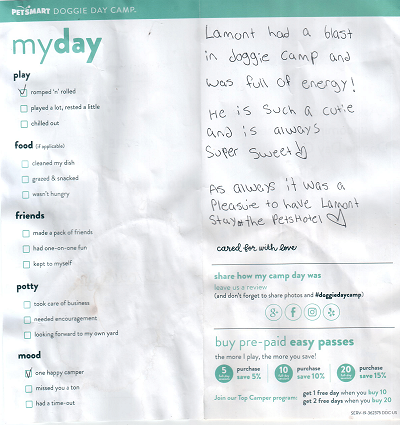 PETSMART DOGGIE DAY CAMP.
myday
play
romped 'n' rolled
played a lot, rested a little
chilled out
food (if applicable)
cleaned my dish
grazed & snacked
wasn't hungry
friends
made a pack of friends
had one-on-one fun
kept to myself
potty
took care of business
needed encouragement
looking forward to my own yard
mood
one happy camper
missed you a ton
had a time-out
Lamont had a blast
in doggie camp and
was full of energy!
He is such a cutie
and is always
super sweet
As always it was a
Pleasure to have Lamont
Stay @ the PetsHotel
cared for with love
share how my camp day was
leave us a review
(and don't forget to share photos and #doggiedaycamp)
g+ f
buy pre-paid easy passes
the more I play, the more you save!
5 purchase save 5%
10 purchase save 10%
20 purchase save 15%
Join our Top Camper program: get 1 free day when you buy 10
get 2 free days when you buy 20